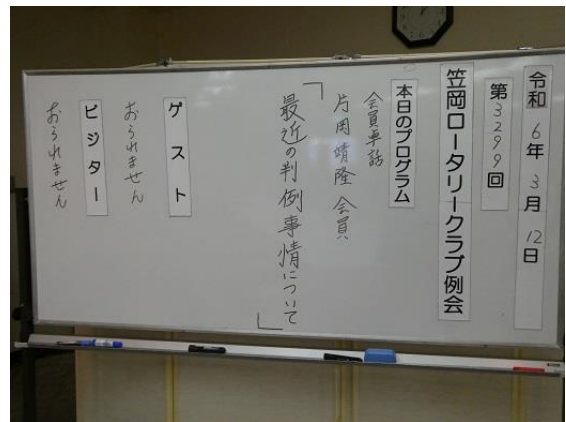 令和6年3月12日
第3299回
笠岡ロータリークラブ例会
本日のプログラム
会員卓話
片岡靖隆会員
「最近の判例事情について」
ゲスト
おられません
ビジター
おられません